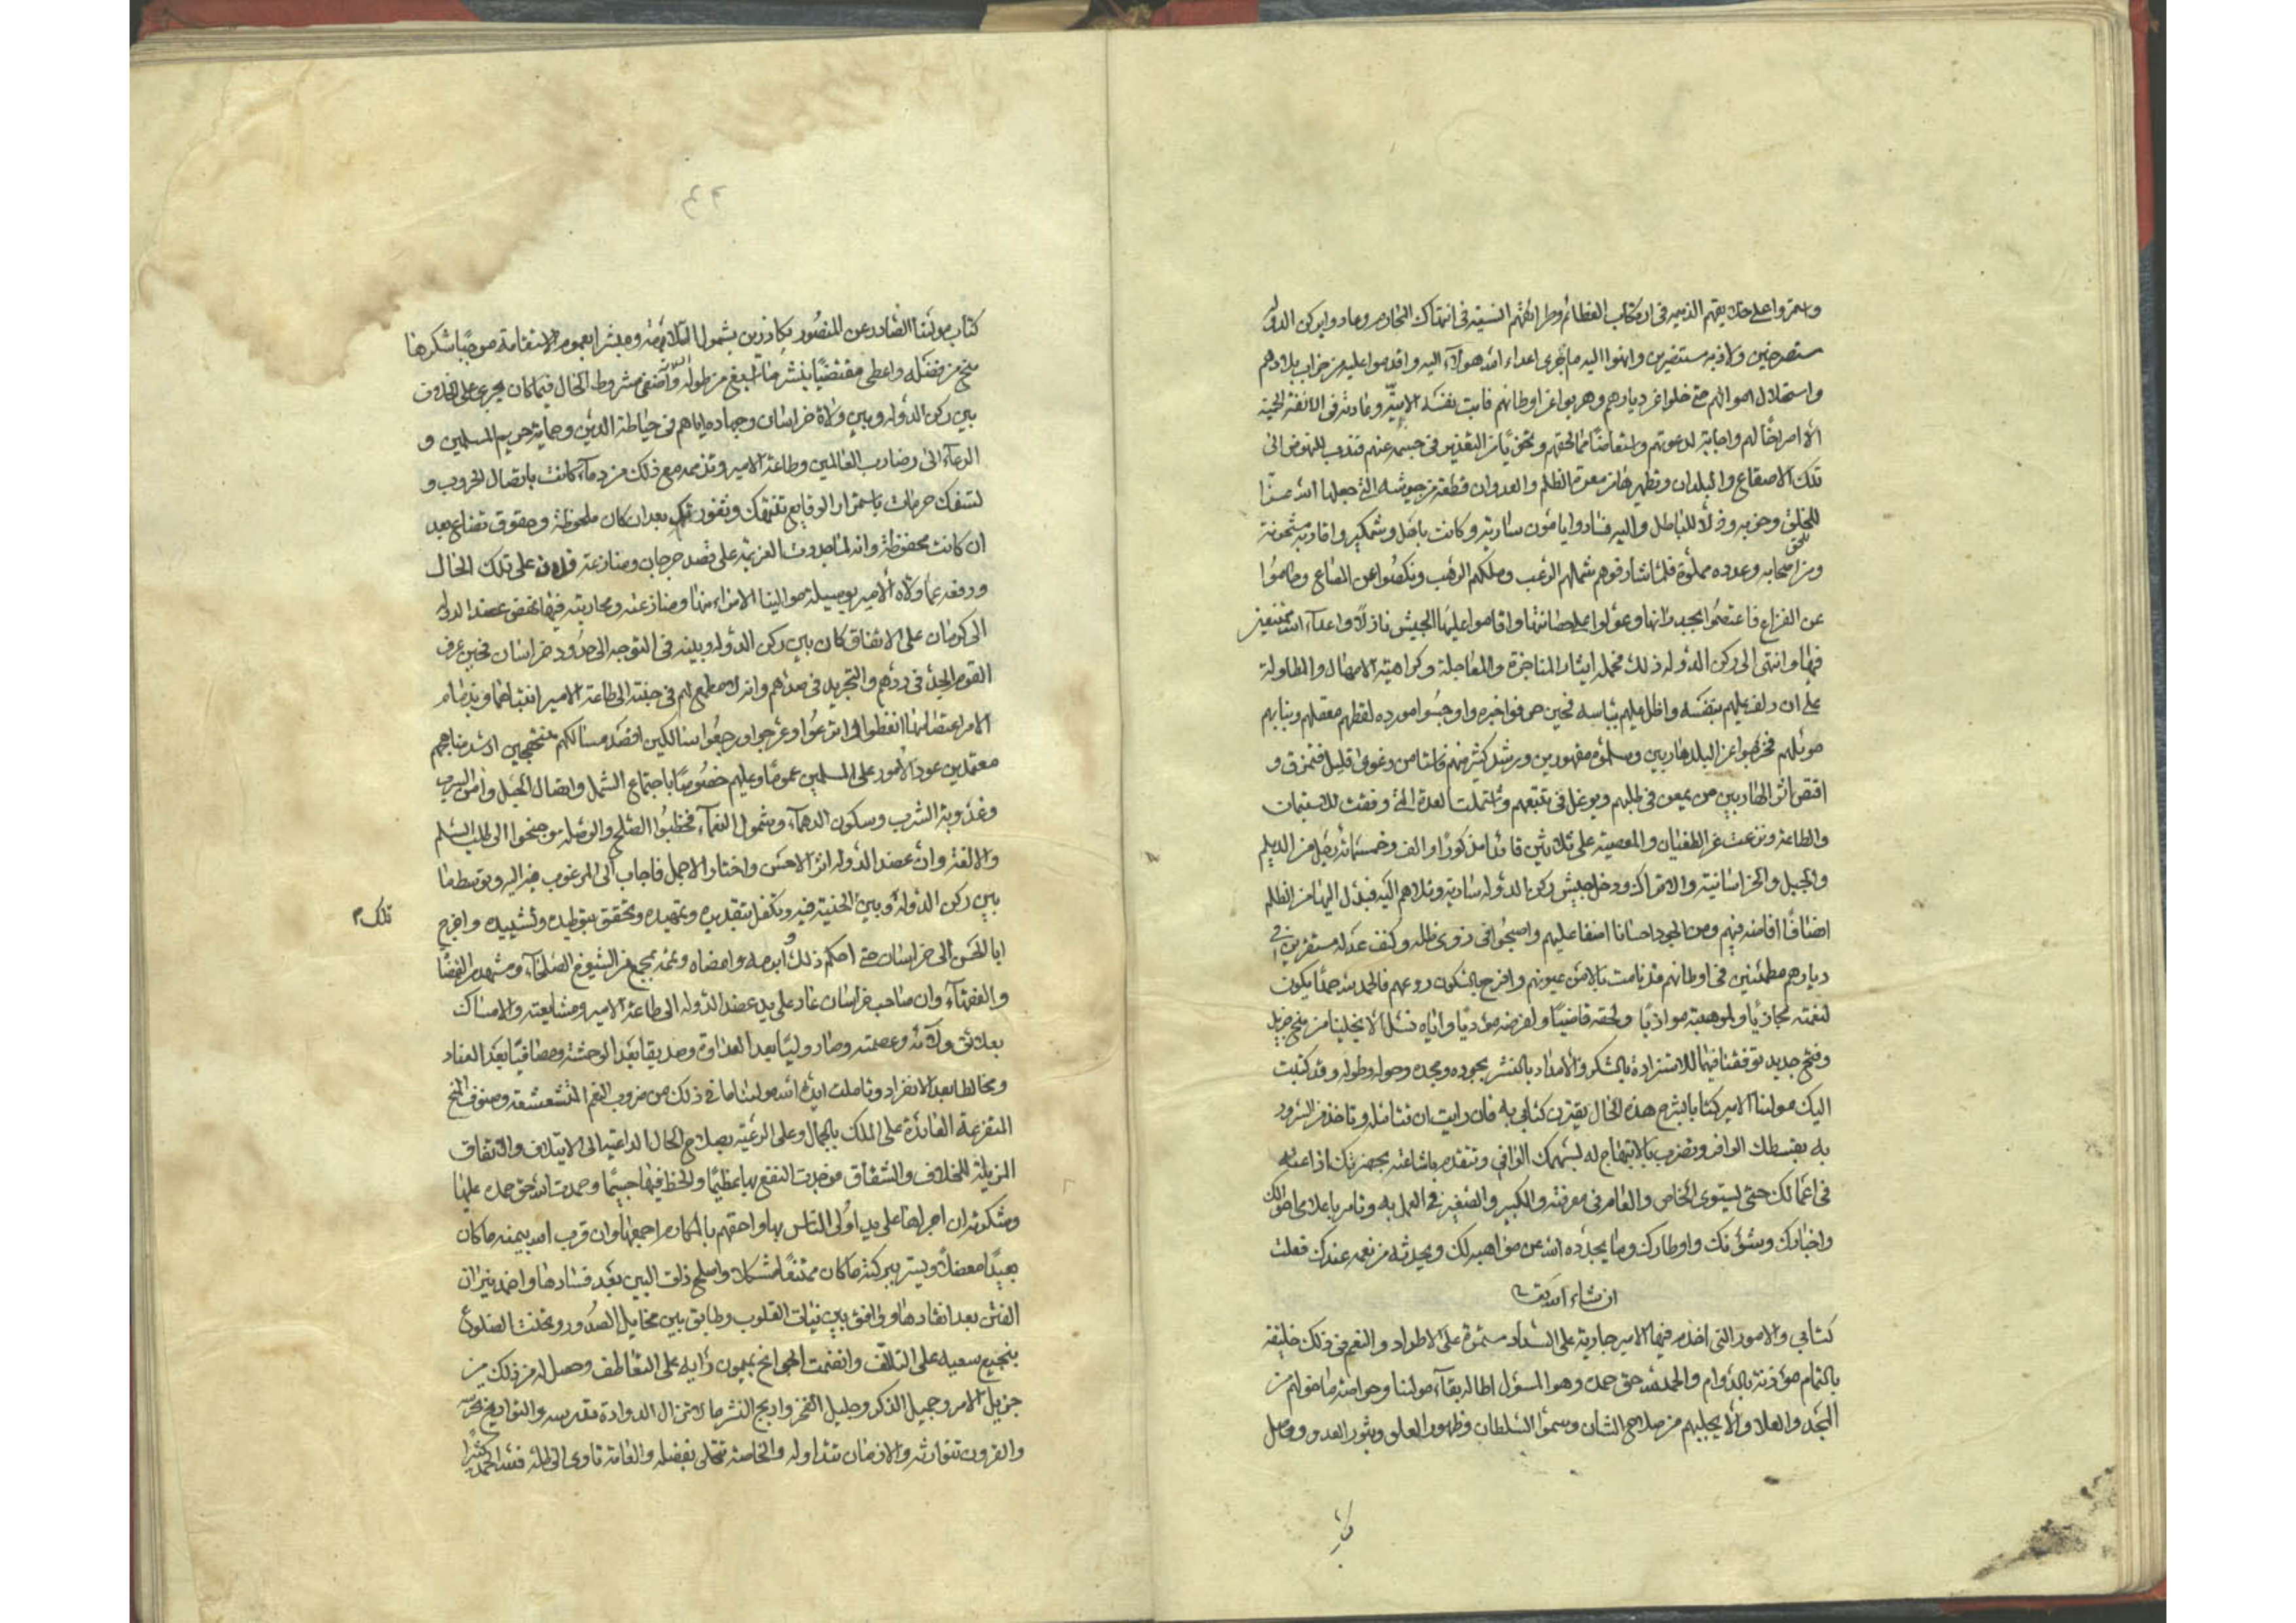 واستمروا على خلايقهم الذميمة في ارتكاب العظائم وطرائقهم الدنية في انتهاك المحارم وعاد وا بركن الدولة
مستصرخين ولاذ به مستنصرين وانهوا اليه ما جرى اعداء الله هولآء اليه واقدموا عليه من خراب بلادهم
واستحلال اموالهم حتى خلوا عن ديارهم وهربوا عن اوطانهم فابت نفسه الابيّة وعادته في الانفة الحمية
الا اصراخا لهم واجابة لدعوتهم وامتعاضا مما لحقهم وتحوّبا من التعذير في حسمه عنهم فندب للنهوض الى
تلك الاصقاع والبلدان وتطهيرها من معرة الظلم والعدوان قطعة من جيوشه التي جعلها الله
للخلق وحزبه وذلا للباطل واليه فساروا يامون سارية وكانت باهل وشمكير واقاربه مشحونة
للحق
ومن اصحابه وعدده مملوة فلما شارفوهم شملهم الرعب وملكهم الرهب ونكصوا عن المصاع وخاموا
عن القراع فاعتصموا بجدرانها وعولوا على حصانتها واقاموا عليها الجيش نازلا واعدآء الله
فيها وانتهى الى ركن الدولة ذلك فحمله ايثار المناجزة والمعاجلة وكراهية الامهال والمطاولة
على ان دلف عليهم بنفسه واظل عليهم بباسه فحين عرفوا خبره واوجسوا مورده لفظهم معقلهم ونبا بهم
موئلهم فخرجوا عن البلد هاربين وسلموه مقهورين
اقتص اثر الهاربين من يمعن في طلبهم ويوغل في تتبعهم واشتملت العدة التي وقفت للاستيمان
والطاعة ونزعت عن الطغيان والمعصية على ثلاثين قائدا مذكورا والف وخمسمائة رجل من الديلم
والجيل والخراسانية والاتراك ودخل جيش ركن الدولة سارية وتلاهم اليه فبدل اليها من الظلم
انصافا افاضه فيهم ومن الجور احسانا اضفا عليهم واصبحوا في ذرى ظله وكنف عدله مستقرين في
ديارهم مطمئنين في اوطانهم قد نامت بالامن عيونهم وافرخ بالسكون روعهم فالحمد لله حمدا يكون
لنعمته مجازيا ولموهبته موازيا ولحقه قاضيا ولفرضه مؤديا واياه نسئل الا يخلينا من منح جزيل
وفتح جديد يوفقنا فيهما للاستزادة بالشكر والامداد بالنشر بجوده ومجده وحوله وطوله وقد كتبت
اليك مولنا الامير كتابا بشرح هذه الحال يقترن كتابي به فان رايت ان تتامله وتاخذ من السرور
به بقسطك الوافر وتضرب بالابتهاج له بسهمك الوافي وتتقدم باشاعته بحضرتك واذاعته
في اعمالك حتى يستوى الخاص والعام في معرفته والكبير والصغير في العمل به وتامر باعلامي احوالك
واخبارك وشؤنك واوطارك وما يجدده الله من مواهبه لك ويحدثه من نعمه عندك فعلت
ان شاء الله تعالى
كتابي والامور التي اخدم فيها الامير جارية على السداد مستمرة على الاطراد والنعم في ذلك خليقة
بالتمام مؤذنة بالدوام والحمد لله حق حمده وهو المسؤل اطالة بقآء مولنا وحراسة ما خوله من
المجد والعلا والا يخليهم من صلاح الشان وسمو السلطان وظهور العلو وثبور العدو ووصل
كتاب
كتاب مولنا الصادر عن المنصور بكازرين بشمول السلامة ومبشرا بعموم الاستقامة موجبا شكر ما
منح من فضله واعطى مقتضيا نشر ما اسبغ من طوله واضفى مشروطه الحال فيما كان يجرى على الخلاف
بين ركن الدولة وبين ولاة خراسان وجهاده اياهم في حياطة الدين وحماية حريم المسلمين و
الدعآء الى رضا رب العالمين وطاعة الامير وتذممه مع ذلك من دمآء كانت باتصال الحروب و
تسفك حرمات باستمرار الوقايع تنتهك وثغور بعد ان كان ملحوظة وحقوق تضاع بعد
ان كانت محفوظة وانه لما جددت العزيمة على قصد جرجان ومنازعة فلان على تلك الحال
ودفعه عما ولاه الامير بوسيلة موالينا الامراء منها ومنازعته ومحاربته فيها نهض عضد الدولة
الى كرمان على الاتفاق كان بين ركن الدولة وبينه في التوجه الى حدود خراسان فحين عرف
القوم الجد في ردهم والتجريد في صدهم وانه لا مطمع لهم في جنبته الى طاعة الامير انتسابها وبذمام
الامر اعتصامها اتعظوا واتزعوا وعرجوا ورجعوا سالكين اقصد مسالكهم منتهجين ارشد مناهجهم
معتمدين عود الامور على المسلمين عموما وعليهم خصوصا باجتماع الشمل واتصال الحبل وامن السرب
وعذوبة الشرب وسكون الدهمآء وشمول النعمآء فخطبوا الصلح والوصلة وجنحوا الى طلب السلم
والالفة وان عضد الدولة اثر الاحسن واختار الاجمل فاجاب الى المرغوب فيه اليه وتوسط ما
بين ركن الدولة وبين الجنبة فيه وتكفل بتقديره وتمهيده وتحقق بتوطيده وتشييده واخرج
تلك
ابا الحسن الى خراسان حتى احكم ذلك وابرمه وامضاه وتممه بمجمع من الشيوخ الصلحآء ومشهد من القضا
والفقهآء وان صاحب خراسان عاد على يد عضد الدولة الى طاعة الامير ومشايعته والامساك
بعلائق ولائه وعصمته وصار وليا بعد العداوة وصديقا بعد الوحشة ومصافيا بعد العناد
ومخالطا بعد الانفراد وتاملت ايد الله مولنا ما في ذلك من ضروب النعم المتشعشعة وصنوف المنح
المتفرعة العائدة على الملك بالجمال وعلى الرعية بصلاح الحال الداعية الى الايتلاف والاتفاق
المزيلة للخلاف والشقاق فوجدت النفع بها عظيما والحظ فيها جسيما وحمدت الله حق حمده عليها
وشكرته ان اجراها على يد اولى الناس بها واحقهم بالمكارم اجمعها وان قرب الله بيمنه ما كان
بعيدا معضلا ويسر ببركته ما كان ممتنعا مشكلا واصلح ذات البين بعد فسادها واخمد نيران
الفتن بعد اتقادها ووافق بين نيات القلوب وطابق بين مخايل الصدور وتحننت الضلوع
بنجيع سعيه على التالف وانضمت الجوانح بميمون رايه على التعاطف وحصل له من ذلك من
جزيل الاجر وجميل الذكر وجليل الفخر واريج النشر ما لا تزال الرواة تدرسه والتواريخ تحرسه
والقرون تتوارثه والازمان تتداوله والخاصة تتحلى بفضله والعامة تاوى الى ظله فلله الحمد كثيرا